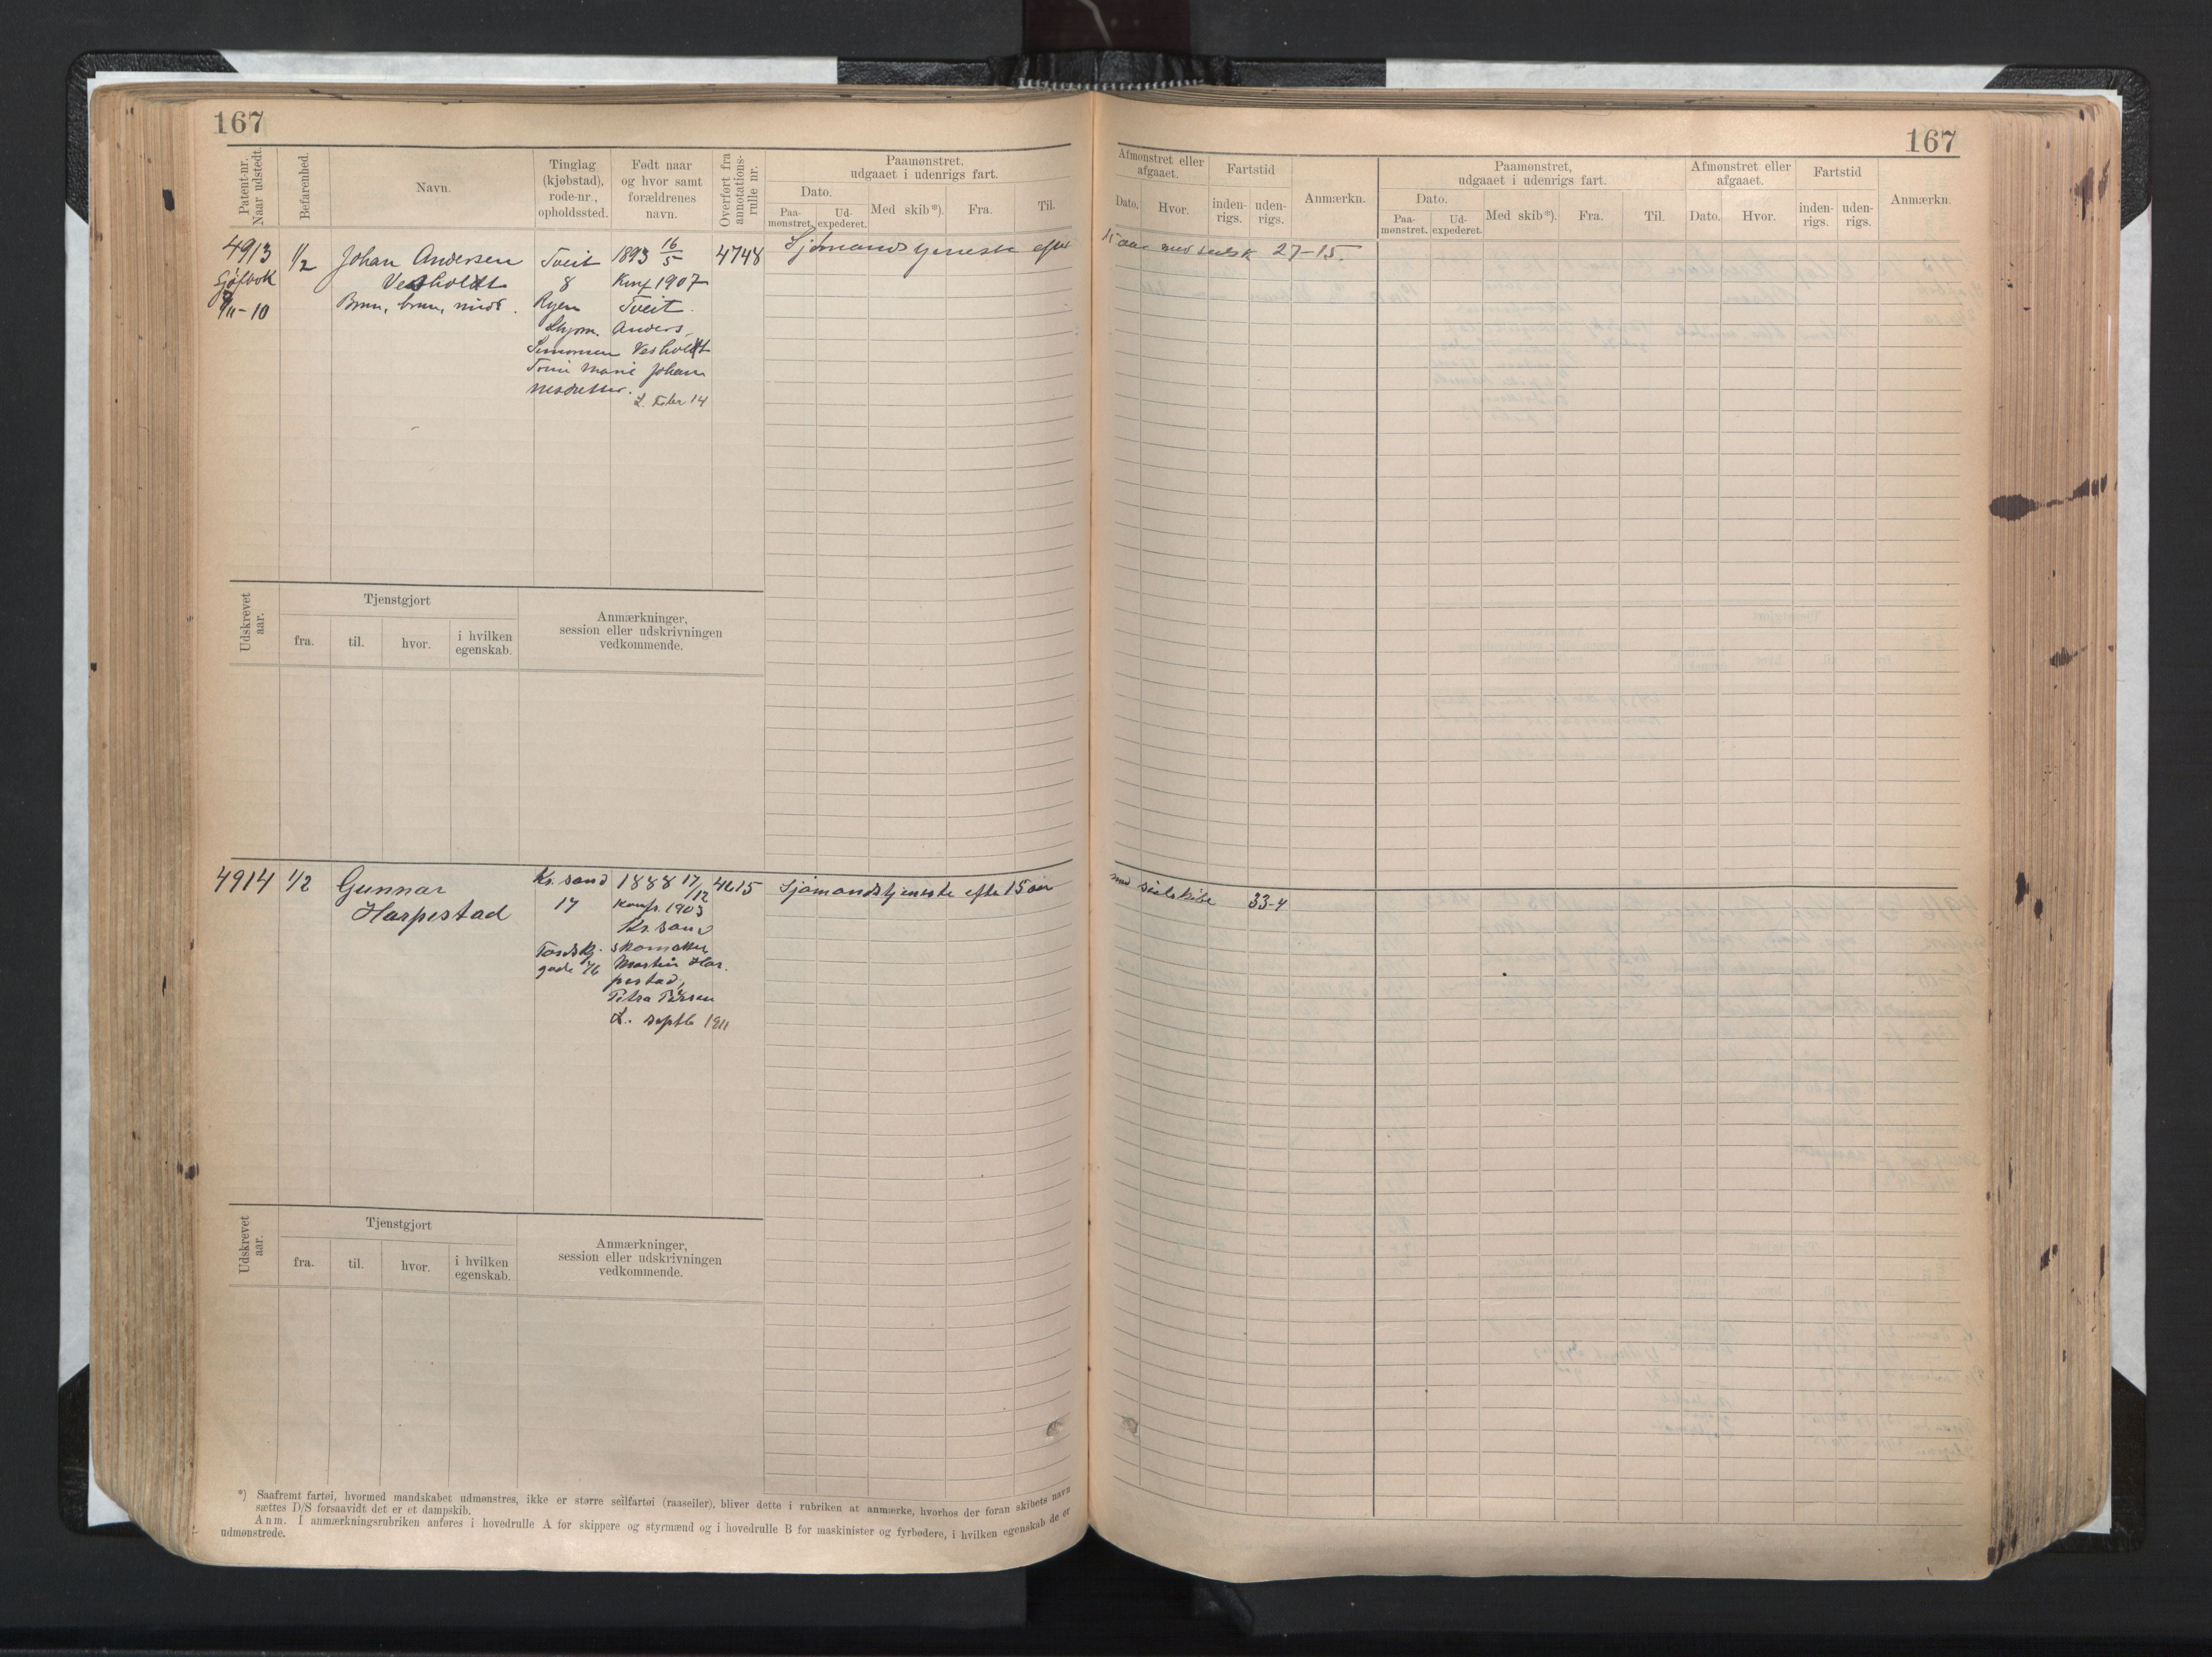 167
Patent-nr.
Naar udstedt
Befarenhed.
Navn.
Tinglag
(kjøbstad),
rode-nr.,
opholdssted.
Født naar
og hvor samt
forældrenes
navn.
Overført fra
annotations-
rulle nr.
Paamønstret,
udgaaet i udenrigs fart.
Dato.
Paa-
mønstret.
Ud-
expederet.
Med skib*).
Fra.
Til.
4913
Sjøfbok
/11-10
1/2
Johan Andersen
Vesholdt
Brun, brun, mids.
Tveit
8
Ryen
1893 16/5
Konf 1907
Tveit.
Anders
Simonsen Vesholdt
Marie Johan
nesdatter.
L. Febr 14
4748
Sjømandstjeneste efter
Udskrevet
aar.
Tjenstgjort
fra.
til.
hvor.
i hvilken
egenskab.
Anmærkninger,
session eller udskrivningen
vedkommende.
4914
1/2
Gunnar
Harpestad
Kr. sand
17
Tordskj.
gade 76
1888 17/12
Konf. 1903
Kr. sand
Skomager
Martin Har
pestad,
Petra
L. septb 1911
4615
Sjømandstjeneste efter 15 aar
Udskrevet
aar.
Tjenstgjort
fra.
til.
hvor.
i hvilken
egenskab.
Anmærkninger,
session eller udskrivningen
vedkommende.
*) Saafremt fartøi, hvormed mandskabet udmønstres, ikke er større seilfartøi (raaseiler), bliver dette i rubriken at anmærke, hvorhos der foran skibets navn
sættes D/S forsaavidt det er et dampskib.
Anm. I anmærkningsrubriken anføres i hovedrulle A for skippere og styrmænd og i hovedrulle B for maskinister og fyrbødere, i hvilken egenskab de er
udmønstrede.
167
Afmønstret eller
afgaaet.
Dato.
Hvor.
Fartstid
inden-
rigs.
uden-
rigs.
Anmærkn.
Paamønstret,
udgaaet i udenrigs fart.
Dato.
Paa-
mønstret.
Ud-
expederet.
Med skib*).
Fra.
Til.
Afmønstret eller
afgaaet.
Dato.
Hvor.
Fartstid
inden-
rigs.
uden-
rigs.
Anmærkn.
15 aar med seilsk 27-15.
med seilskibe 33-4